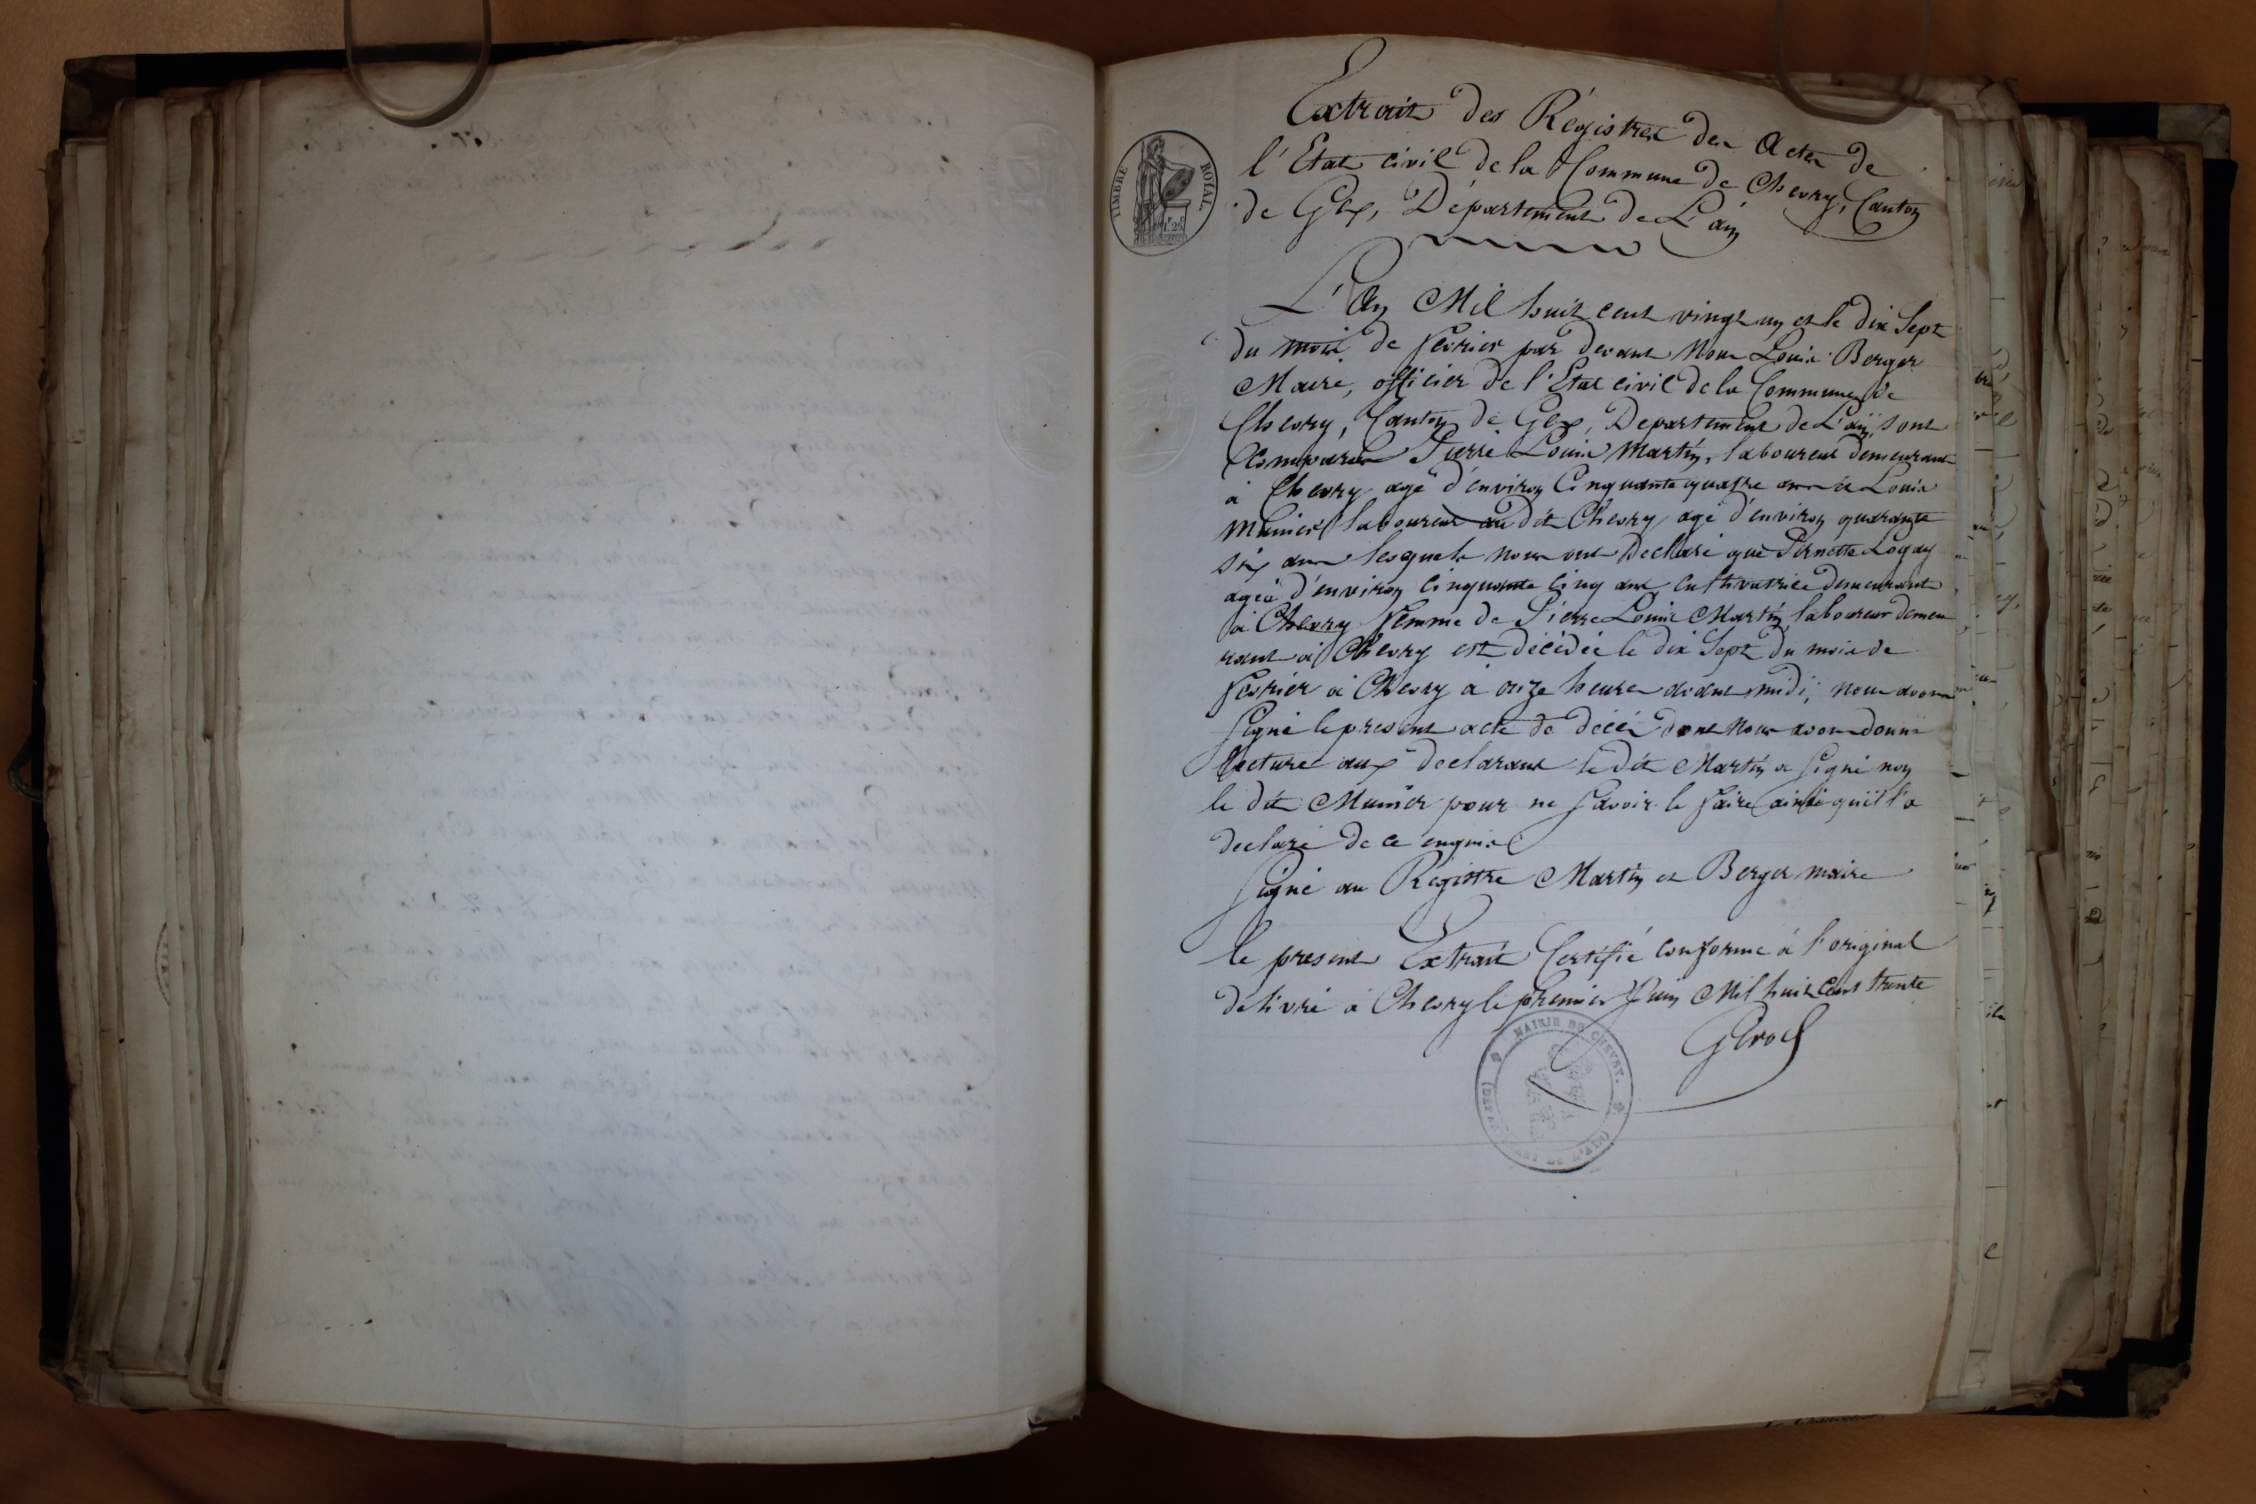 TIMBRE ROYAL
Extrait des Régistres des Actes de
l'Etat civil de la Commune de Chevry, Canton
de Gex, Département de L'ain
L'an Mil huit cent vingt un et le dix Sept
du mois de fevrier par devant Nous Louis Berger
Maire, officier de l'Etat civil de la Commune de
Chevry, Canton de Gex, Departement de L'ain, sont
Comparus Pierre Louis Martin, laboureur demeurant
à Chevry agé d'environ Cinquante quatre ans et Louis
Munier laboureur au dit Chevry agé d'environ quarante
six ans lesquels nous ont Declaré que Pernette Logay
agée d'environ Cinquante Cinq ans, cultivatrice demeurant
à Chevry femme de Pierre Louis Martin laboureur demeu
rant à Chevry est décédée le dix Sept du mois de
fevrier à Chevry à onze heures avant midi, nous avons
Signé le present acte de décés dont Nous avons donné
lecture aux declarans le dit Martin a signé non
le dit Munier pour ne Savoir le faire ainsi qu'il l'a
declaré de ce enquis
Signé au Régistre Martin et Berger maire
le present Extrait Certifié conforme à l'original
délivré à Chevry le premier Juin Mil huit cent trente
MAIRIE DE CHEVRY